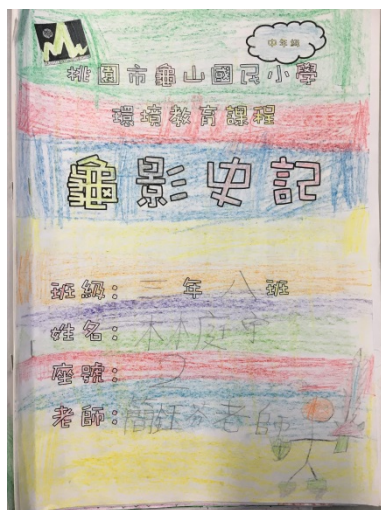 中年級
桃園市龜山國民小學
環境教育課程
龜影史記
班級：三年八班
姓名：林庭宇
座號：2
老師：老師